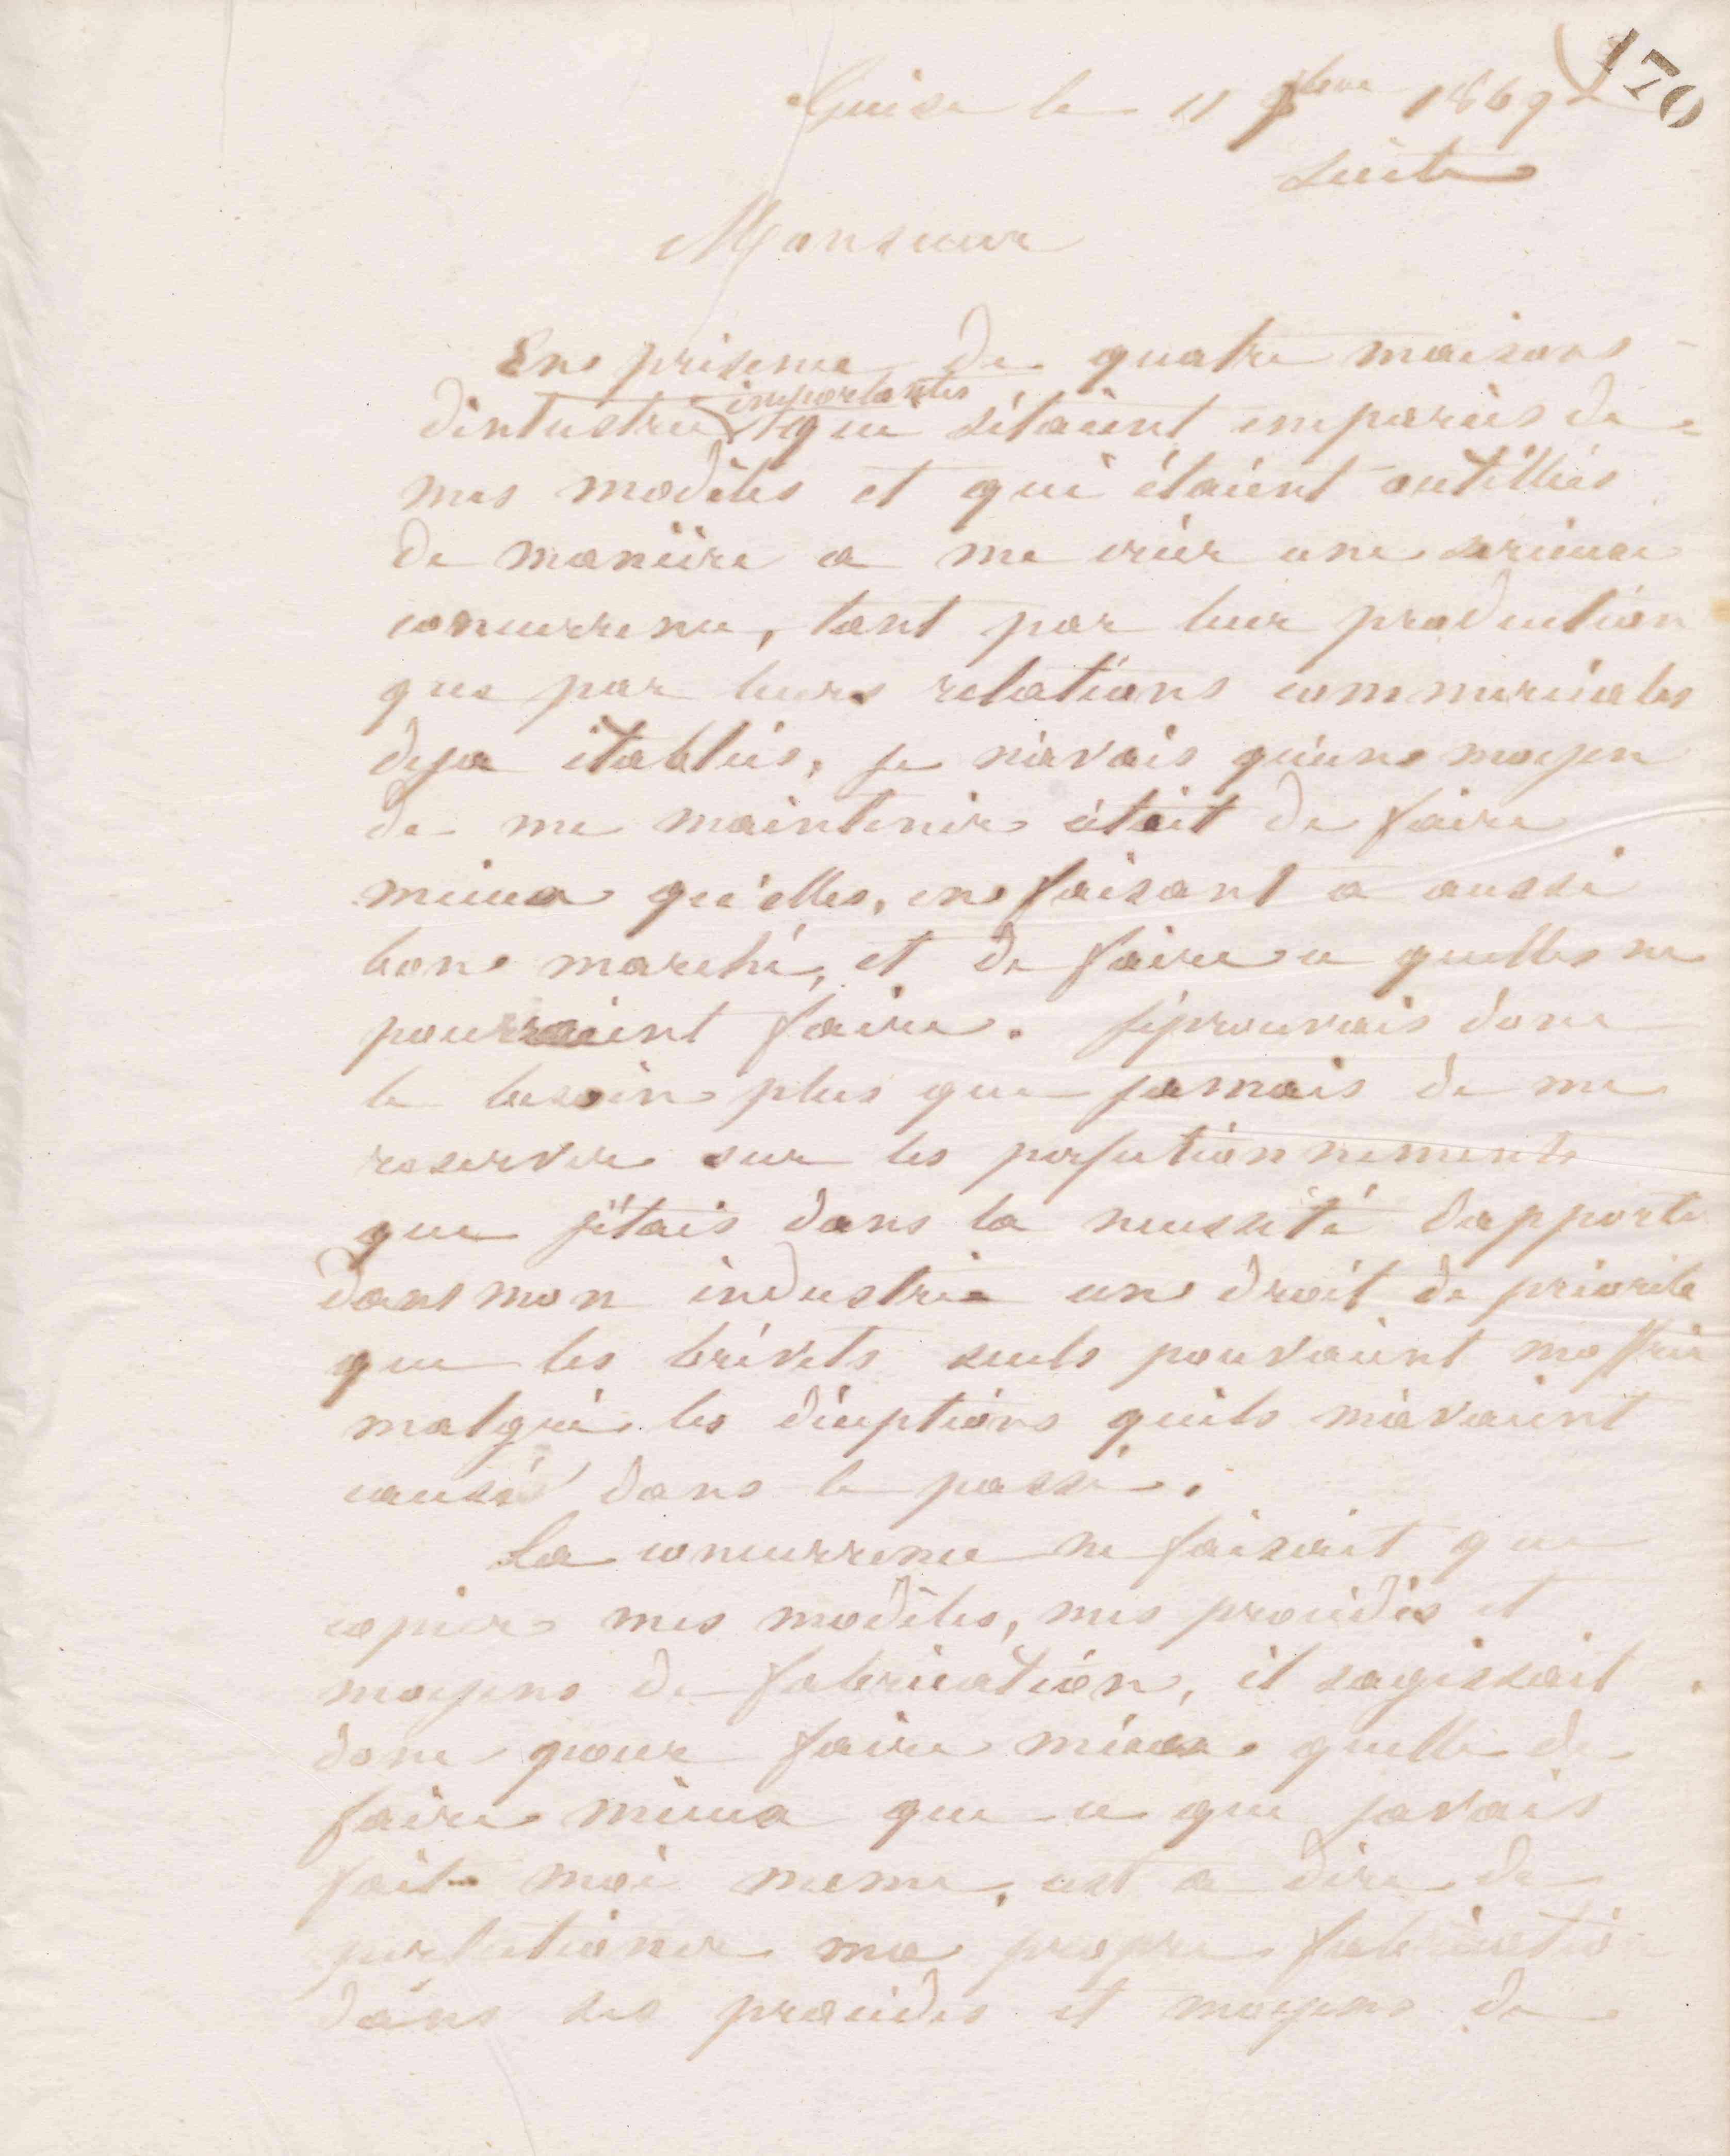 170
Guise le 11 1869
Suite
Monsieur
En présence de quatre maisons
dintustrie importantes qui s'étaient emparées de
mes modèles et qui étaient outillées
de manière a me créer une serieuse
concurrence, tant par leur production
que par leurs relations commerciales
deja établies, je n'avais qu'un moyen
de me maintenir c'était de faire
mieux qu'elles, en faisant a aussi
bon marché, et de faire ce quelles ne
pourraient faire. J'éprouvais donc
le besoin plus que jamais de me
reserver sur les perfectionnements
que j'étais dans la necessité dapporter
dans mon industrie un droit de priorité
que les brévets seuls pouvaient moffrir
malgré les déceptions qu'ils m'avaient
causé dans le passé.
La concurrence ne faisait que
copier mes modèles, mes procédés et
moyens de fabrication, il sagissait
donc pour faire mieux quelle de
faire mieux que ce que javais
fait moi meme, cest a dire de
perfectioner ma propre fabrication
dans ses procédés et moyens de